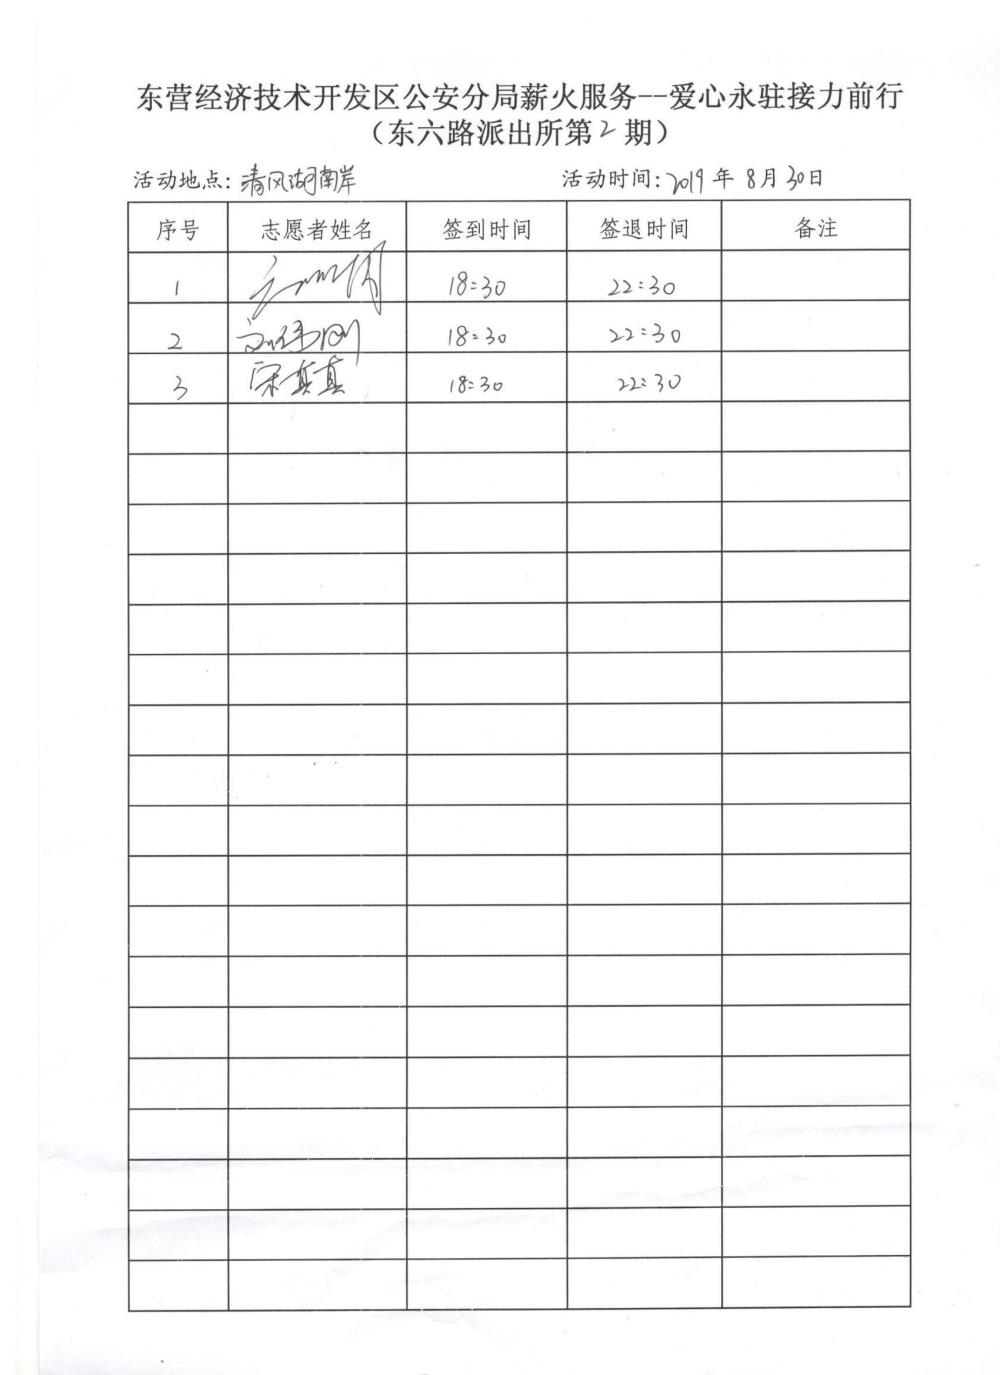 东营经济技术开发区公安分局薪火服务--爱心永驻接力前行
（东六路派出所第2期）
活动地点：清风湖南岸 活动时间：2019年8月30日
序号 志愿者姓名 签到时间 签退时间 备注
1 18:30 22:30
2 18:30 22:30
3 宋真真 18:30 22:30